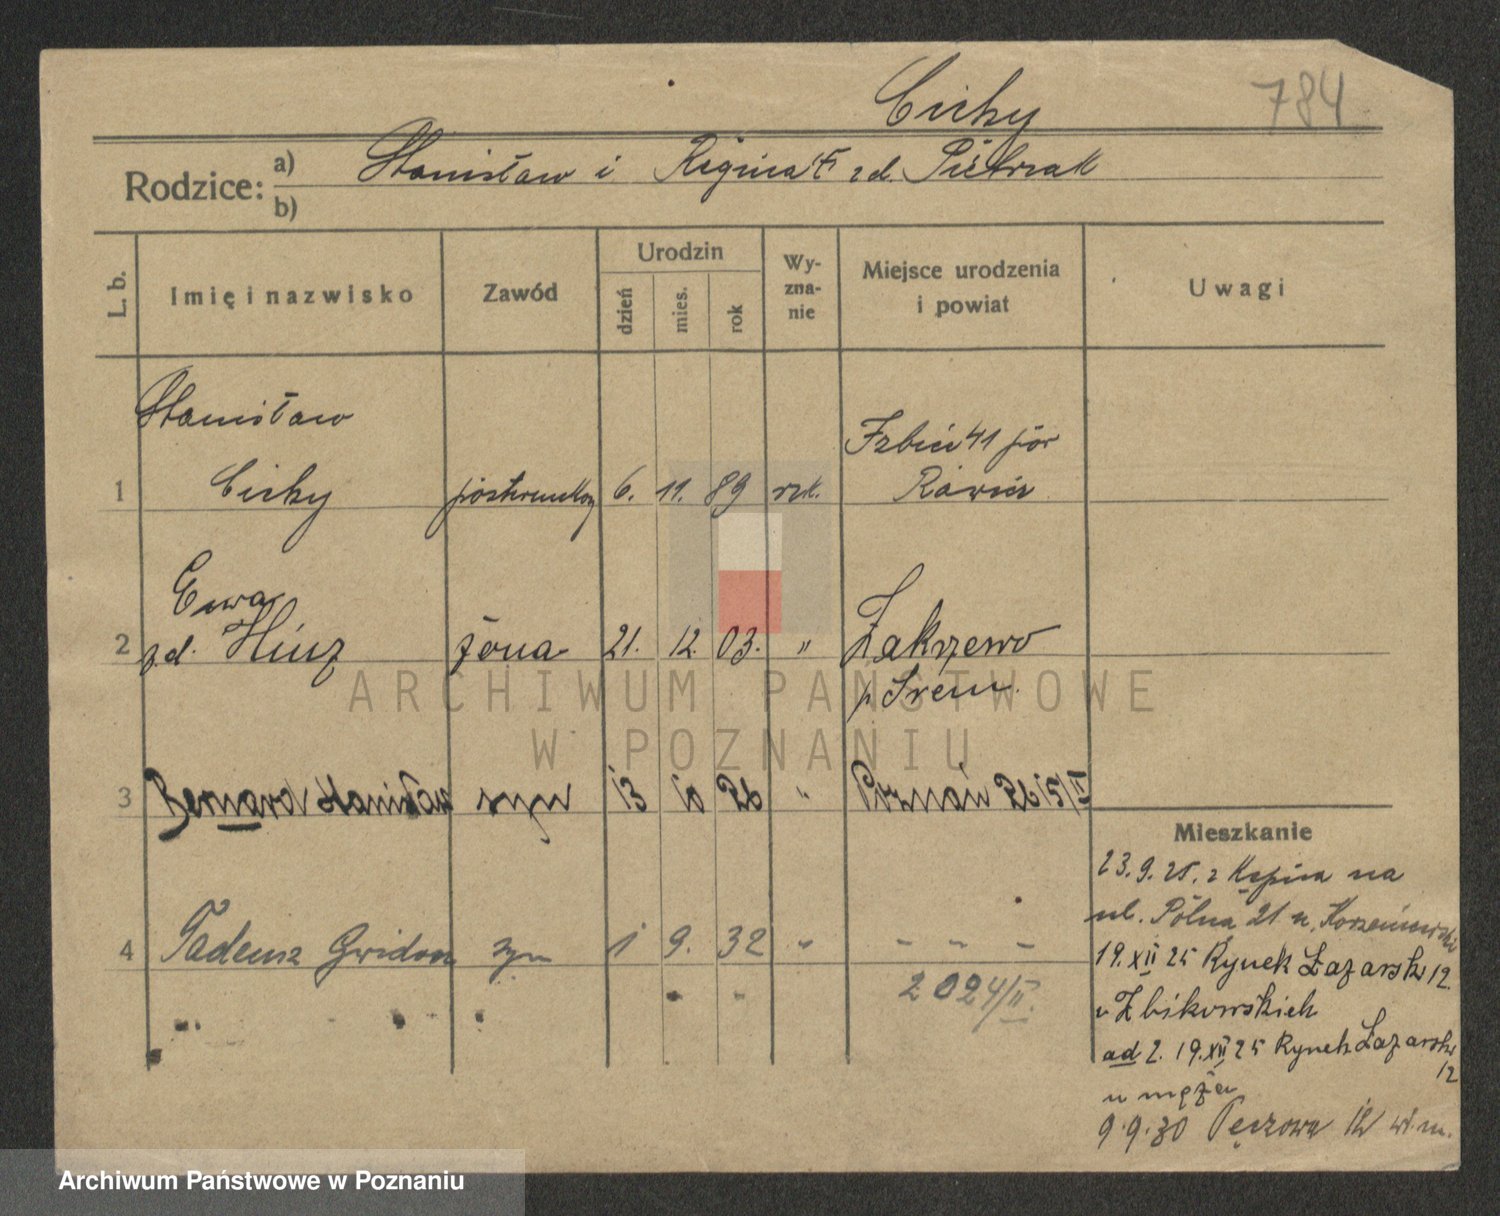 Cichy
784
Rodzice: a) Stanisław i Regina zd. Pietrzak
b)
L. b. Imię i nazwisko Zawód Urodzin Wy-zna-nie Miejsce urodzenia i powiat Uwagi
dzień mies. rok
Stanisław
1 Cichy 6. 11. 89 rzk.
Ewa
2 zd. Hinz żona 21. 12. 03. " Zakrzewo
p. Śrem.
3 Bernard Stanisław syn 13 10 26 " Poznań
4 Tadeusz Gwidon syn 1 9. 32 " - - -
2024/II.
Mieszkanie
23.9.25. z na
ul. Polna 21 u.
19.XII 25 Rynek Łazarski 12.
u Zbikowskich
ad 2. 19.XII 25 Rynek Łazarski
12
u męża
9.9.30 12 m.
ARCHIWUM PAŃSTWOWE
W POZNANIU
Archiwum Państwowe w Poznaniu